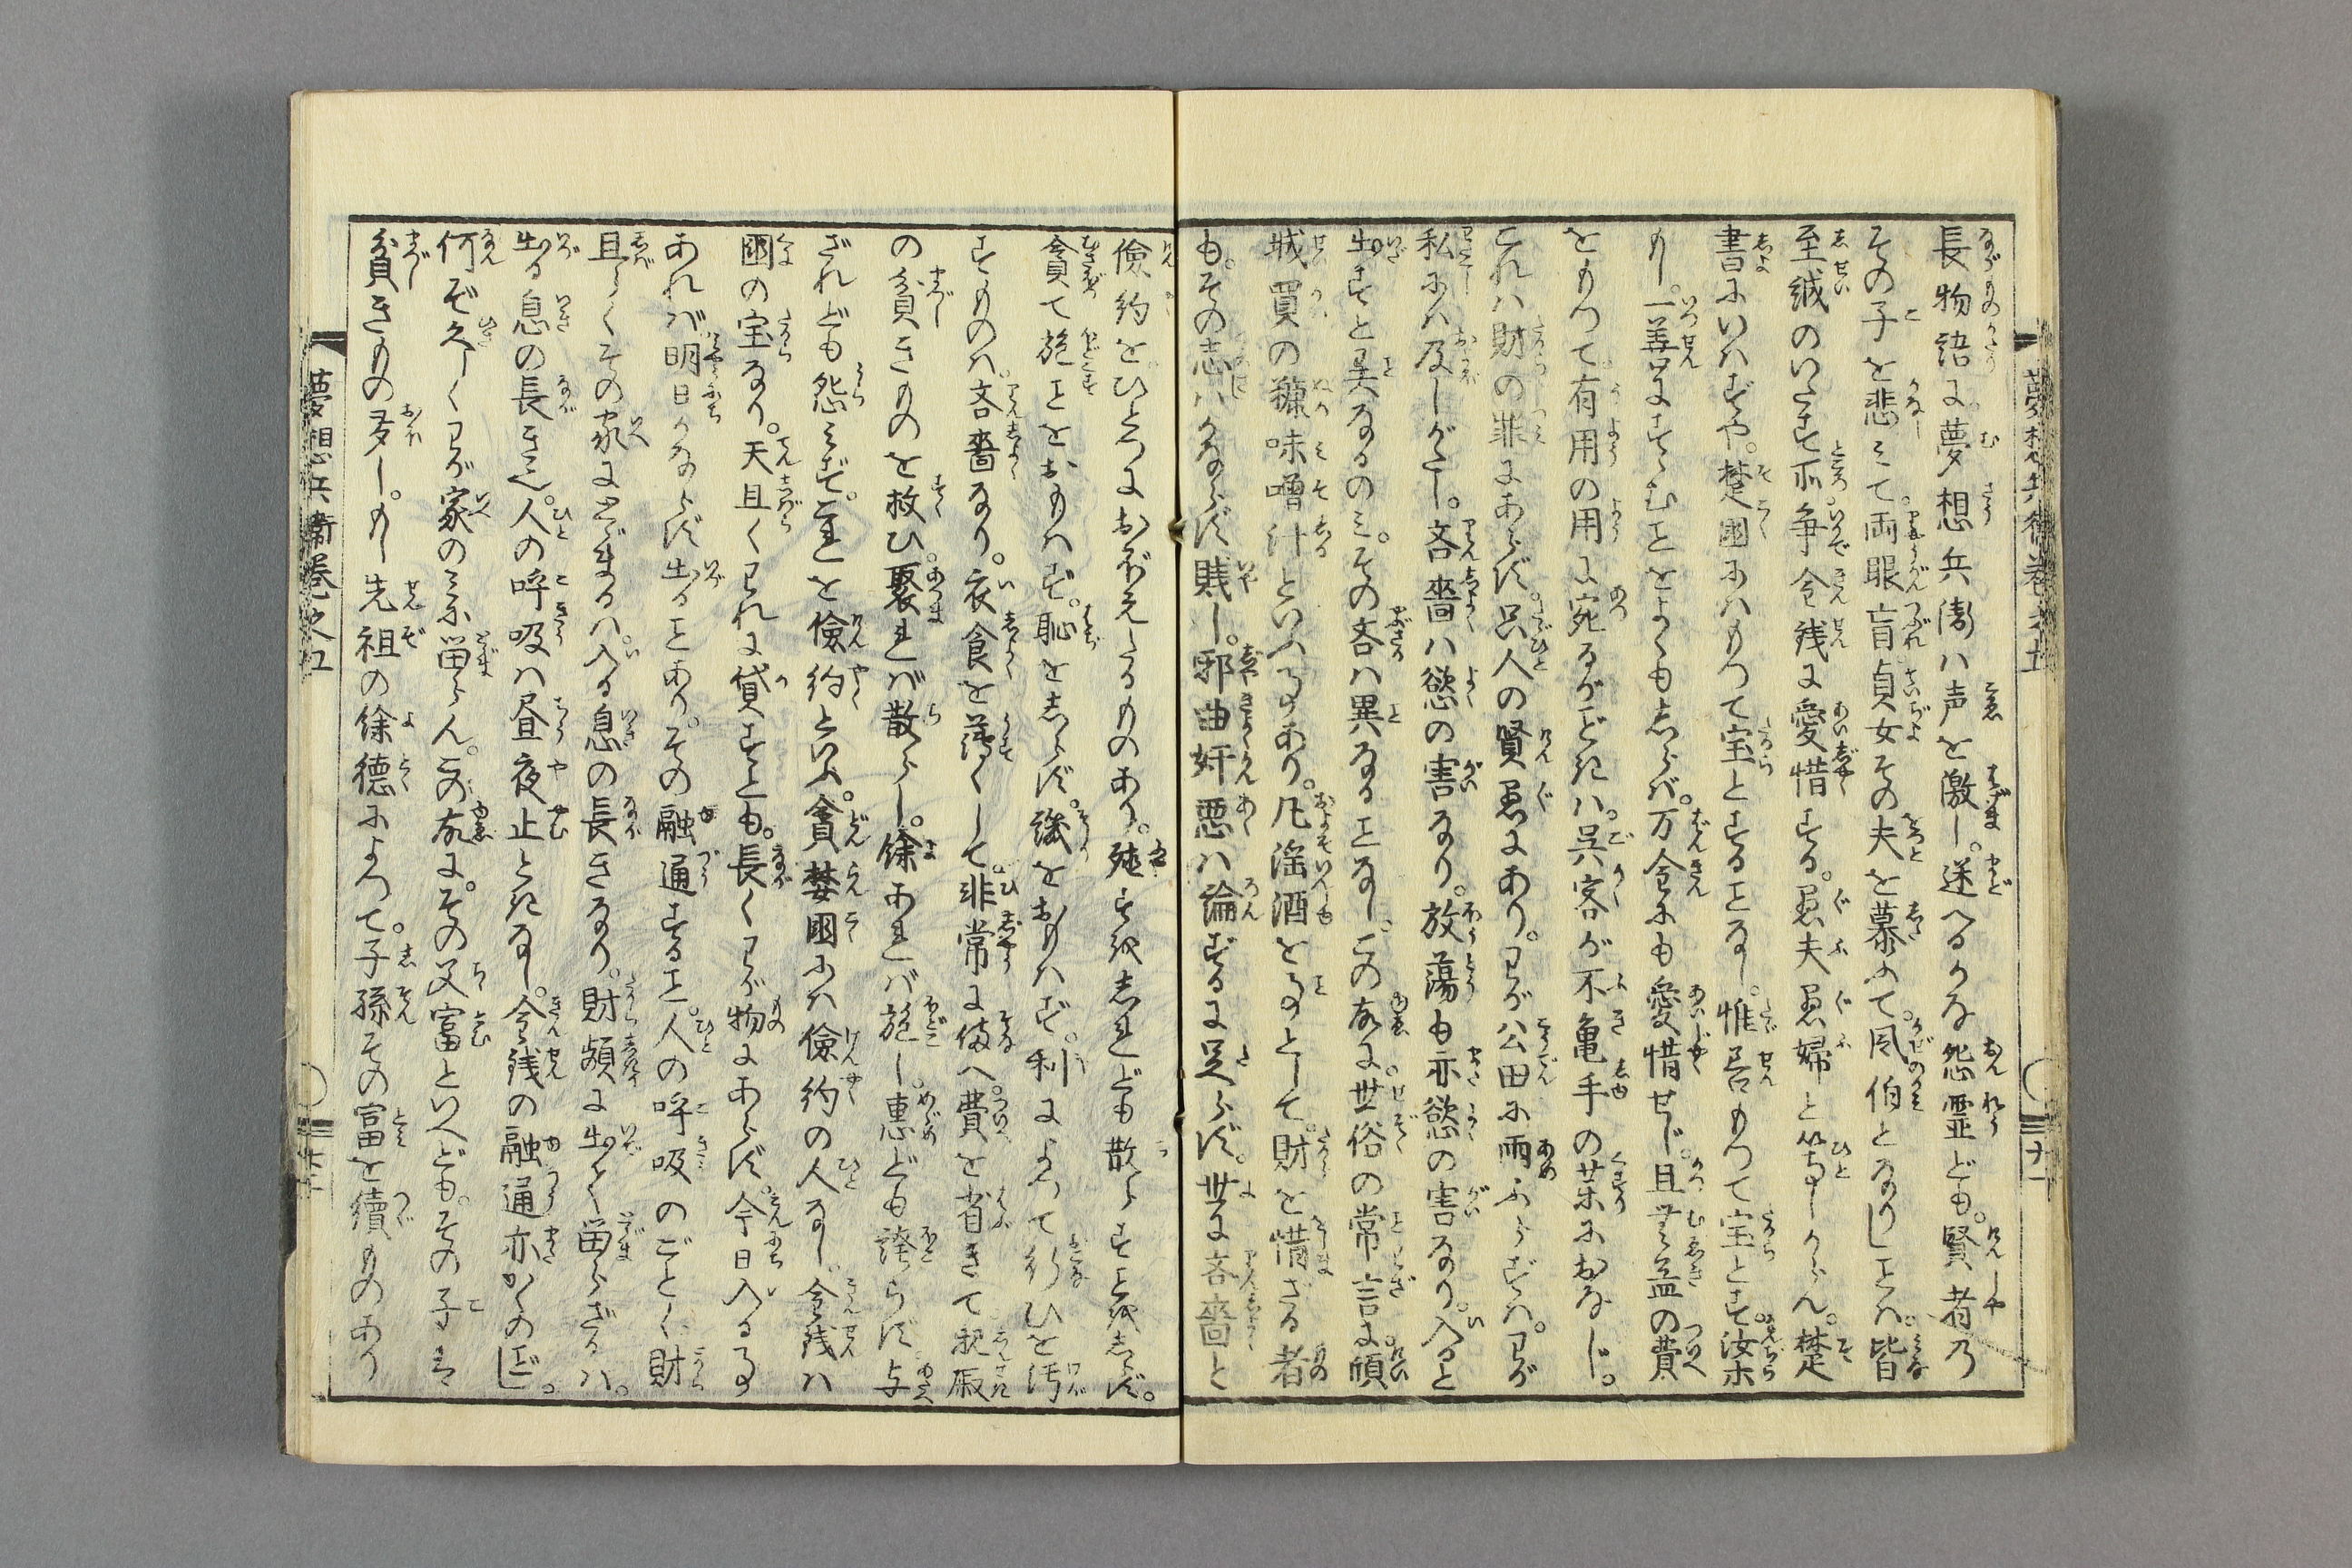 長物語に夢想兵衛ハ声を激し。迷へるかな怨霊ども。賢者乃
その子を悲ミて両眼盲貞女その夫を慕ふて。風伯となりしことハ。皆
至誠のいたす所。争金銭に愛惜する。愚夫愚婦と等しからん。楚
書にいはずや。楚國にハもつて宝とすることなし。惟善もつて宝とす。汝ホ
もし。一善にすゝむことをよくもしらバ。万金にも愛惜せじ。且無益の費
をもつて有用の用に宛るがごときハ。呉客が不亀手の薬におなじ。
これハ財の罪にあらず。只人の賢愚にあり。わが公田に雨ふらずハ。わが
私にハ及しがたし。吝嗇ハ慾の害なり。放蕩も亦慾の害なり。入ると
出すと異なるのミ。その吝ハ異なることなし。この故に。世俗の常言に。傾
城買の糠味噌汁といふ事あり。凡淫酒を事として。財を惜ざる者
も。その志ハかならず賎し。邪曲奸悪ハ論ずるに足らず。世に吝嗇と
倹約をひとつにおぼえたるものあり。殖すを知れども散らすことを知らず。
貪て施ことをおもハず。恥をしらず。譏をおもハず。利によつて行ひを汚
すものハ。吝嗇なり。衣食を薄くして。非常に備へ。費を省きて親戚
の貧きものを救ひ。聚れバ散らし。餘あれバ施し。恵ども誇らず。与
ざれども怨ミず。これを倹約といふ。貪婪國にハ倹約の人なし。金銭ハ
國の宝なり。天且くわれに貸すとも。長くわが物にあらず。今日入る事
あれバ明日かならず出ることあり。その融通すること。人の呼吸のごとく財
且らくその家にとゞまるハ。入る息の長きなり。財頻に出て留らざるハ。
出る息の長き也。人の呼吸ハ昼夜止ときなし。金銭の融通亦かくのごとし。
何ぞ久しくわが家のミに留らん。この故に。その父富といへども。その子は
貧きもの多し。もし先祖の餘徳によつて。子孫その富を續ものあり
夢想兵衛巻之五
夢想兵衛巻之五